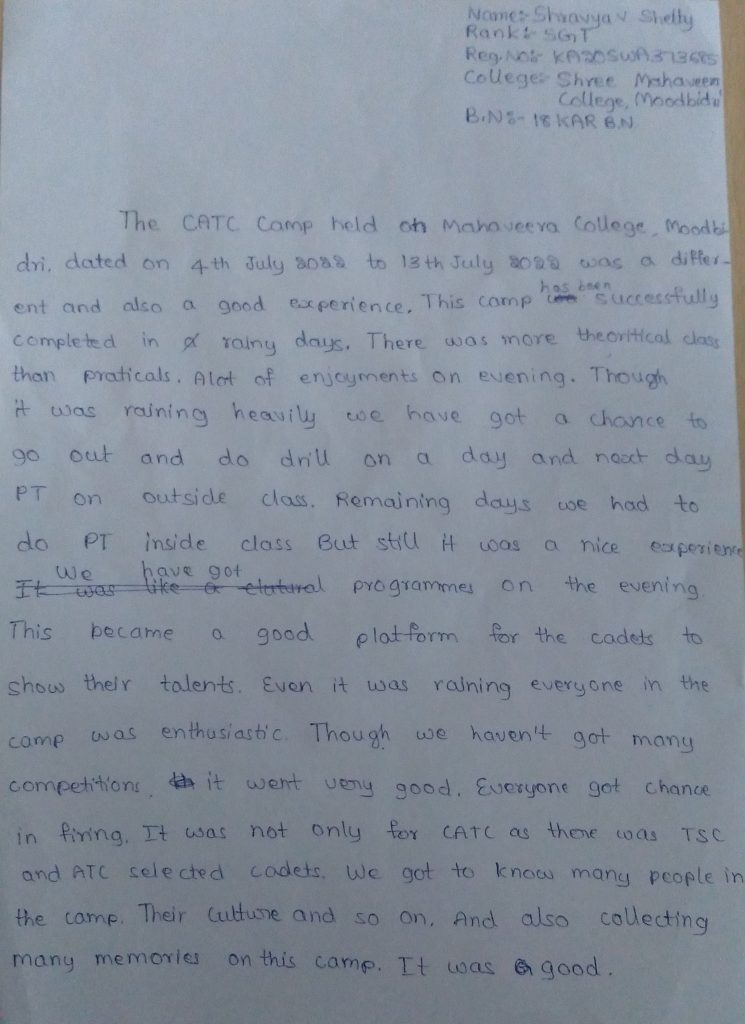 Name:- Shravya V Shetty
Rank:- SGT
Reg.No:- KA20SWA373685
College:- Shree Mahaveera
College, Moodbidri
B.N:- 18 KAR B.N
The CATC Camp held on Mahaveera College, Moodbi
dri. dated on 4th July 2022 to 13th July 2022 was a differ-
ent and also a good experience. This camp has been successfully
completed in rainy days. There was more theoritical class
than praticals. Alot of enjoyments on evening. Though
it was raining heavily we have got a chance to
go out and do drill on a day and next day
PT on outside class. Remaining days we had to
do PT inside class But still it was a nice experience
We have got programmes on the evening.
This became a good platform for the cadets to
show their talents. Even it was raining everyone in the
camp was enthusiastic. Though we haven't got many
competitions, it went very good. Everyone got chance
in firing. It was not only for CATC as there was TSC
and ATC selected cadets. We got to know many people in
the camp. Their culture and so on. And also collecting
many memories on this camp. It was good.